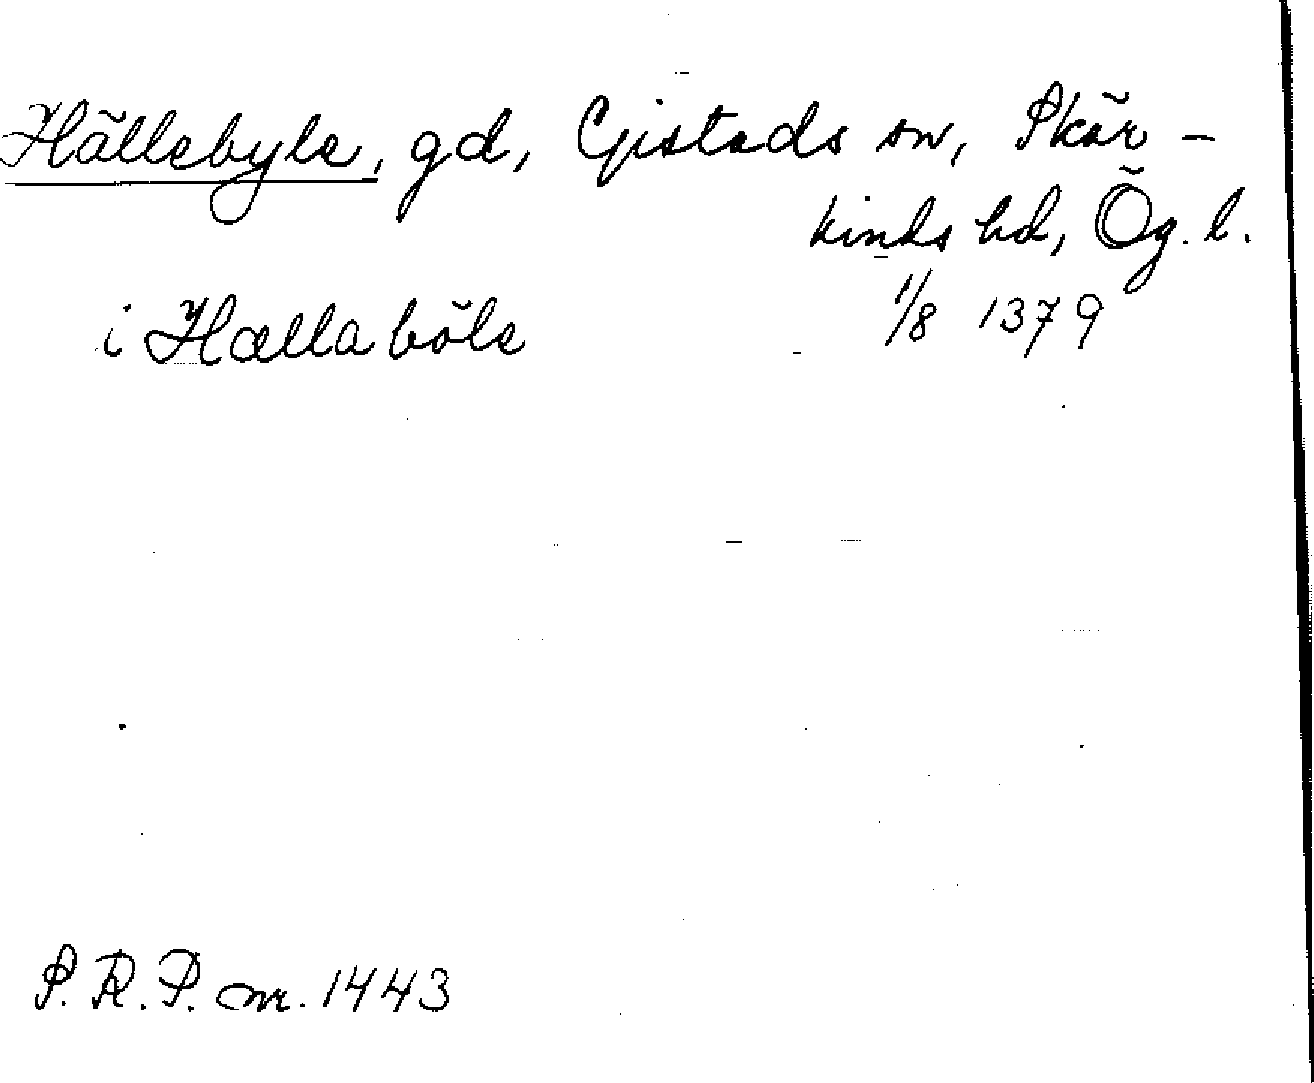 Hällebyle, gd, Gistads sn, Skär-
kinds hd, Ög. l.
i Hælla böle 1/8 1379
S. R. P. nr. 1443